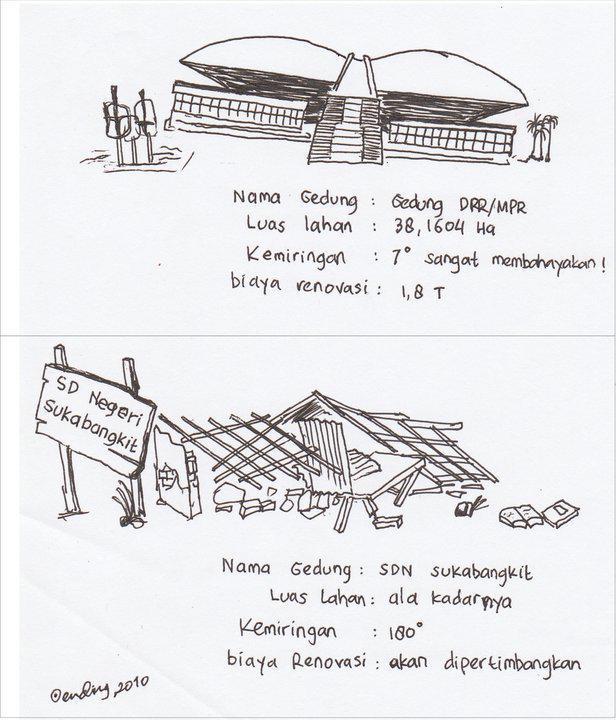 Nama Gedung : Gedung DRR/MPR
Luas lahan : 38,1604 Ha
Kemiringan : 7° sangat membahayakan!
biaya renovasi : 1,8 T
SD Negeri
Sukabangkit
Nama Gedung : SDN sukabangkit
Luas Lahan : ala kadarnya
Kemiringan : 180°
biaya Renovasi : akan dipertimbangkan
2010